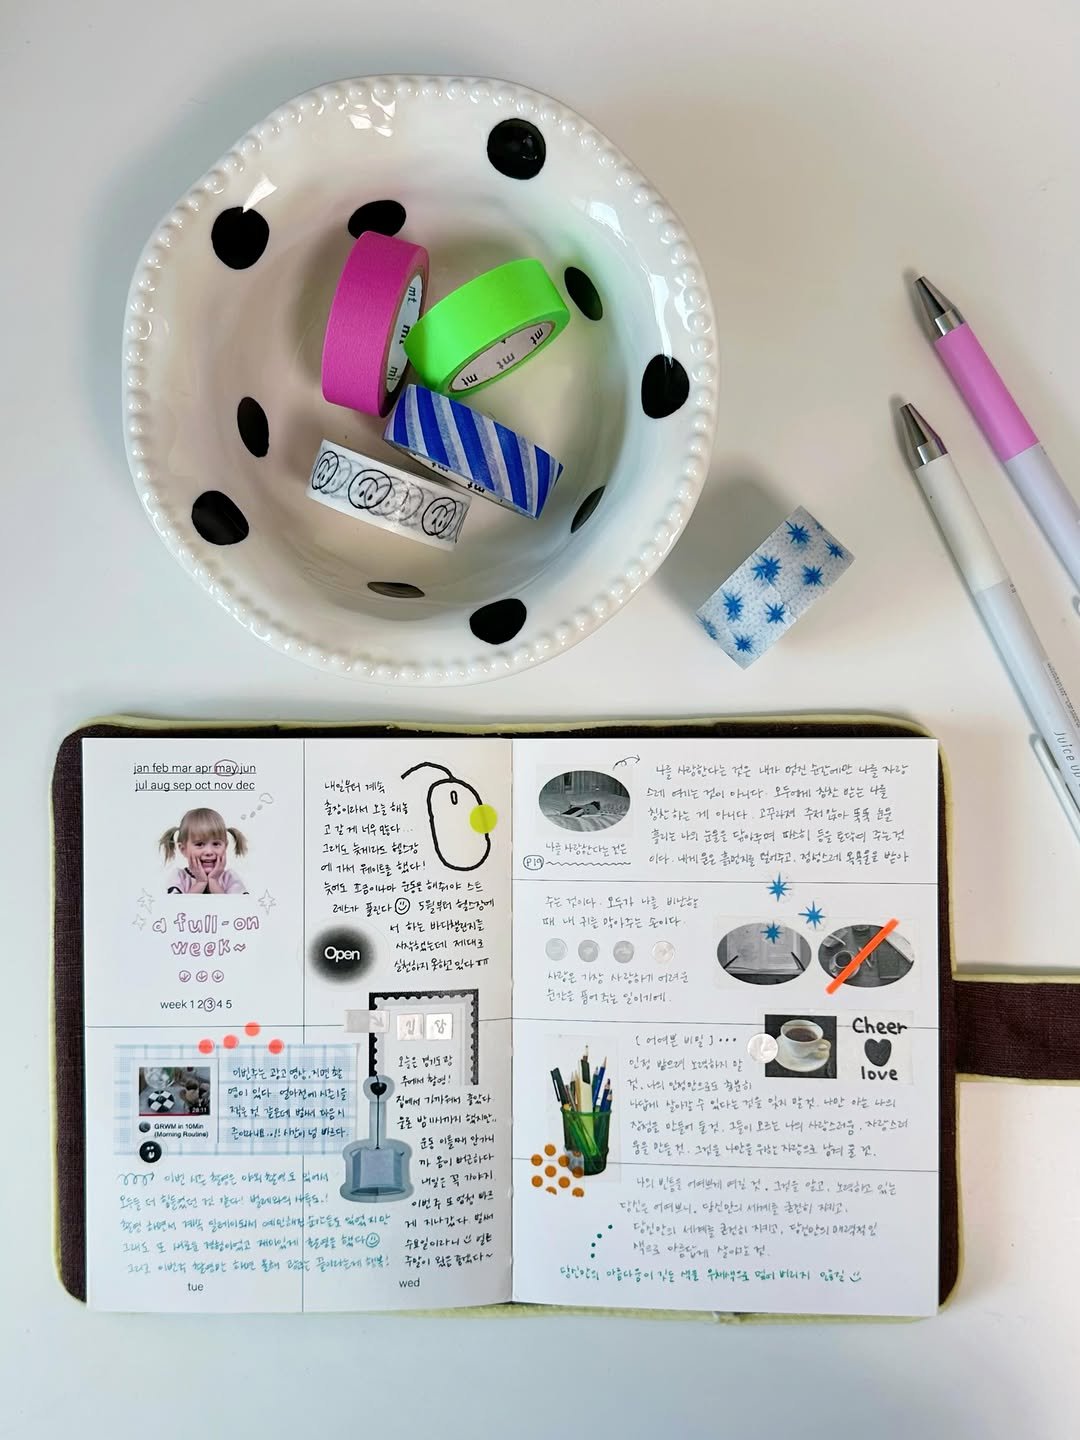 mt
mt
mt
mt
mt
mt
Juice up
jan feb mar apr may jun
jul aug sep oct nov dec
a full-on
week~
week 1 2 3 4 5
내일부터 계속
출장이라서 오늘 해놓
고 갈 게 너무 많다...
그래도 늦게라도 헬스장
에 가서 웨이트를 했다!
늦어도 조금이나마 운동을 해줘야 스트
레스가 풀린다 5월부터 헬스장에
서 하는 바디챌린지를
시작했는데 제대로
실천하지 못하고 있다 ㅠㅠ
Open
28:11
GRWM in 10Min
(Morning Routine)
이번주는 광고 영상, 지면 촬
영이 있다. 얼마전에 시즌1을
찍은 것 같은데 벌써 다음 시
즌이라니요.!! 시간이 넘 빠르다.
이번 시즌 촬영은 야외 촬영도 있어서
오늘은 더 힘들었던 것 같다!
촬영 하면서 계속 딜레이되서 예민해진 순간들도 있었지만
그래도 또 새로운 경험이었고 재미있게 촬영을 했다
그리고 이번 촬영만 하면 올해 광고는 끝이라는게 행복!
tue
일 상
오늘은 경기도 광
주에서 촬영!
집에서 가까워서 좋았다.
물론 밤 11시까지 했지만..
운동 이틀째 안가니
까 몸이 뻐근하다
내일은 꼭 가야지
이번 주 또 엄청 빠르
게 지나갔다. 벌써
수요일이라니
주말이 왔음 좋겠다~
wed
나를 사랑한다는 것은
P19
나를 사랑한다는 것은 내가 멋진 순간에만 나를 자랑
스레 여기는 것이 아니다. 모두에게 칭찬 받는 나를
칭찬하는 게 아니다. 고꾸라져 주저앉아 뚝뚝 눈물
흘리는 나의 눈물을 닦아주며 따스히 등을 토닥여 주는 것
이다. 내게 묻은 흙먼지를 털어주고, 정성스레 목욕물을 받아
주는 것이다. 모두가 나를 비난할
때 내 귀를 막아주는 손이다.
사랑은 가장 사랑하기 어려운
순간을 품어주는 일이기에.
Cheer
love
[ 어여쁜 비밀 ] ...
인정 받으려 노력하지 말
것. 나의 인정만으로도 충분히
나답게 살아갈 수 있다는 것을 잊지 말 것. 나만 아는 나의
장점을 만들어 둘 것. 그들이 모르는 나의 사랑스러움, 자랑스러
움을 만들 것. 그것을 나만을 위한 자랑으로 남겨 둘 것.
나의 빈틈을 어여쁘게 여길 것. 그것을 알고, 노력하고 있는
당신은 어여쁘니. 당신만의 세계를 굳건히 지키고,
당신만의 세계를 굳건히 지키고, 당신만의 매력적인
색으로 아름답게 살아가는 것.
당신만의 아름다움이 깃든 색을 무채색으로 덮어 버리지 않길